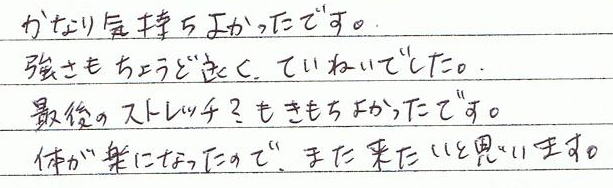 かなり気持ちよかったです。
強さもちょうど良く、ていねいでした。
最後のストレッチ?もきもちよかったです。
体が楽になったので、また来たいと思います。